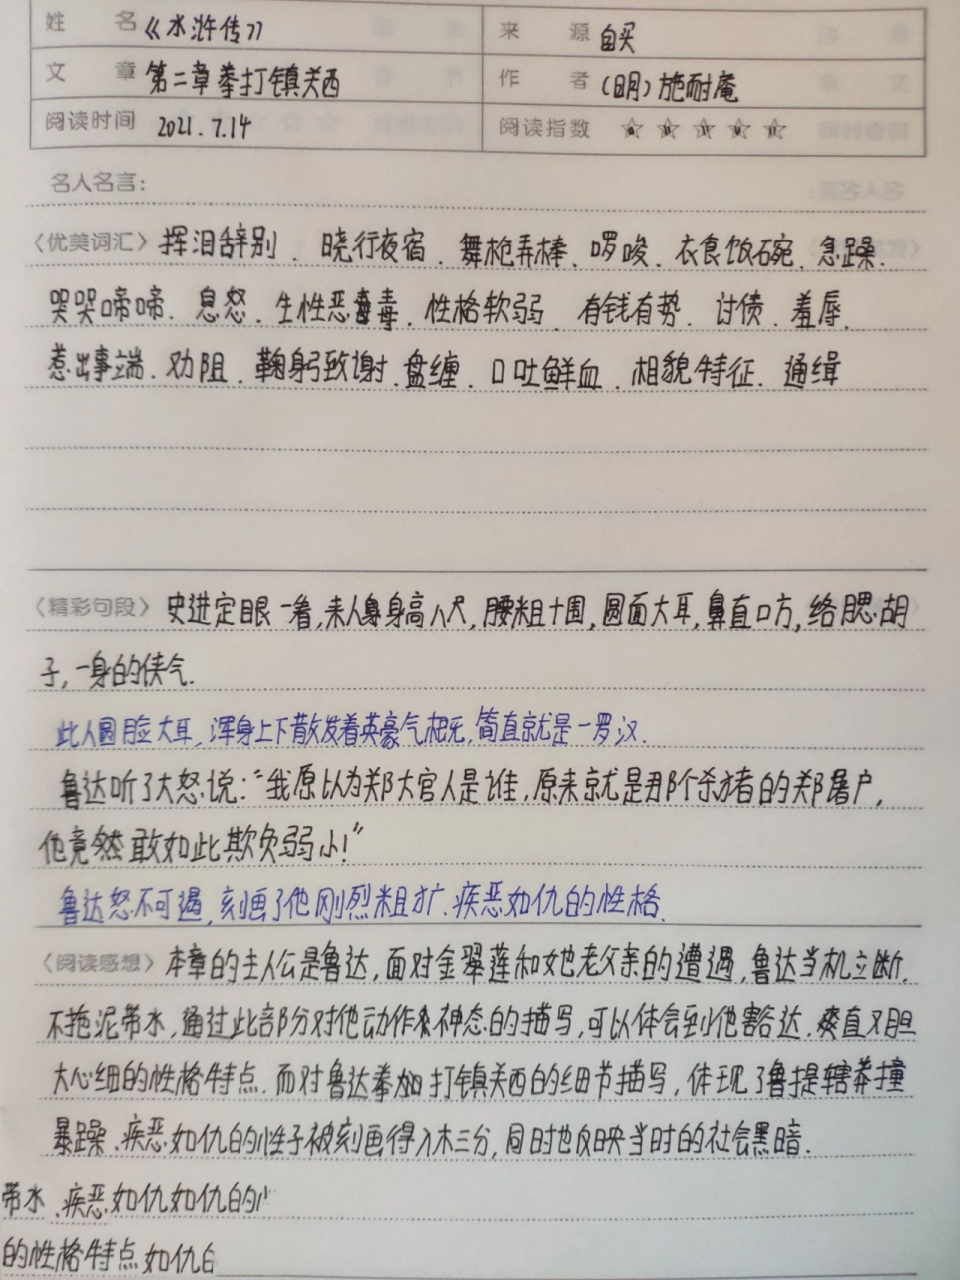 姓 名 《水浒传》 来 源 自买
文 章 第二章 拳打镇关西 作 者 (明)施耐庵
阅读时间 2021.7.14 阅读指数 ☆☆☆☆☆
名人名言:
〈优美词汇〉挥泪辞别、晓行夜宿、舞枪弄棒、啰唆、衣食饭碗、急躁、
哭哭啼啼、息怒、生性恶毒、性格软弱、有钱有势、讨债、羞辱、
惹出事端、劝阻、鞠躬致谢、盘缠、口吐鲜血、相貌特征、通缉
〈精彩句段〉史进定眼一看,来人身高八尺,腰粗十围,圆面大耳,鼻直口方,络腮胡
子,一身的侠气.
此人圆脸大耳,浑身上下散发着英豪气概,简直就是一罗汉.
鲁达听了大怒说:“我原以为郑大官人是谁,原来就是那个杀猪的郑屠户,
他竟然敢如此欺负弱小!”
鲁达怒不可遏,刻画了他刚烈粗犷、疾恶如仇的性格.
〈阅读感想〉本章的主人公是鲁达,面对金翠莲和她老父亲的遭遇,鲁达当机立断、
不拖泥带水,通过此部分对他动作和神态的描写,可以体会到他豁达、爽直又胆
大心细的性格特点.而对鲁达拳打镇关西的细节描写,体现了鲁提辖莽撞
暴躁、疾恶如仇的性子被刻画得入木三分,同时也反映当时的社会黑暗.
带水、疾恶如仇如仇的
的性格特点如仇